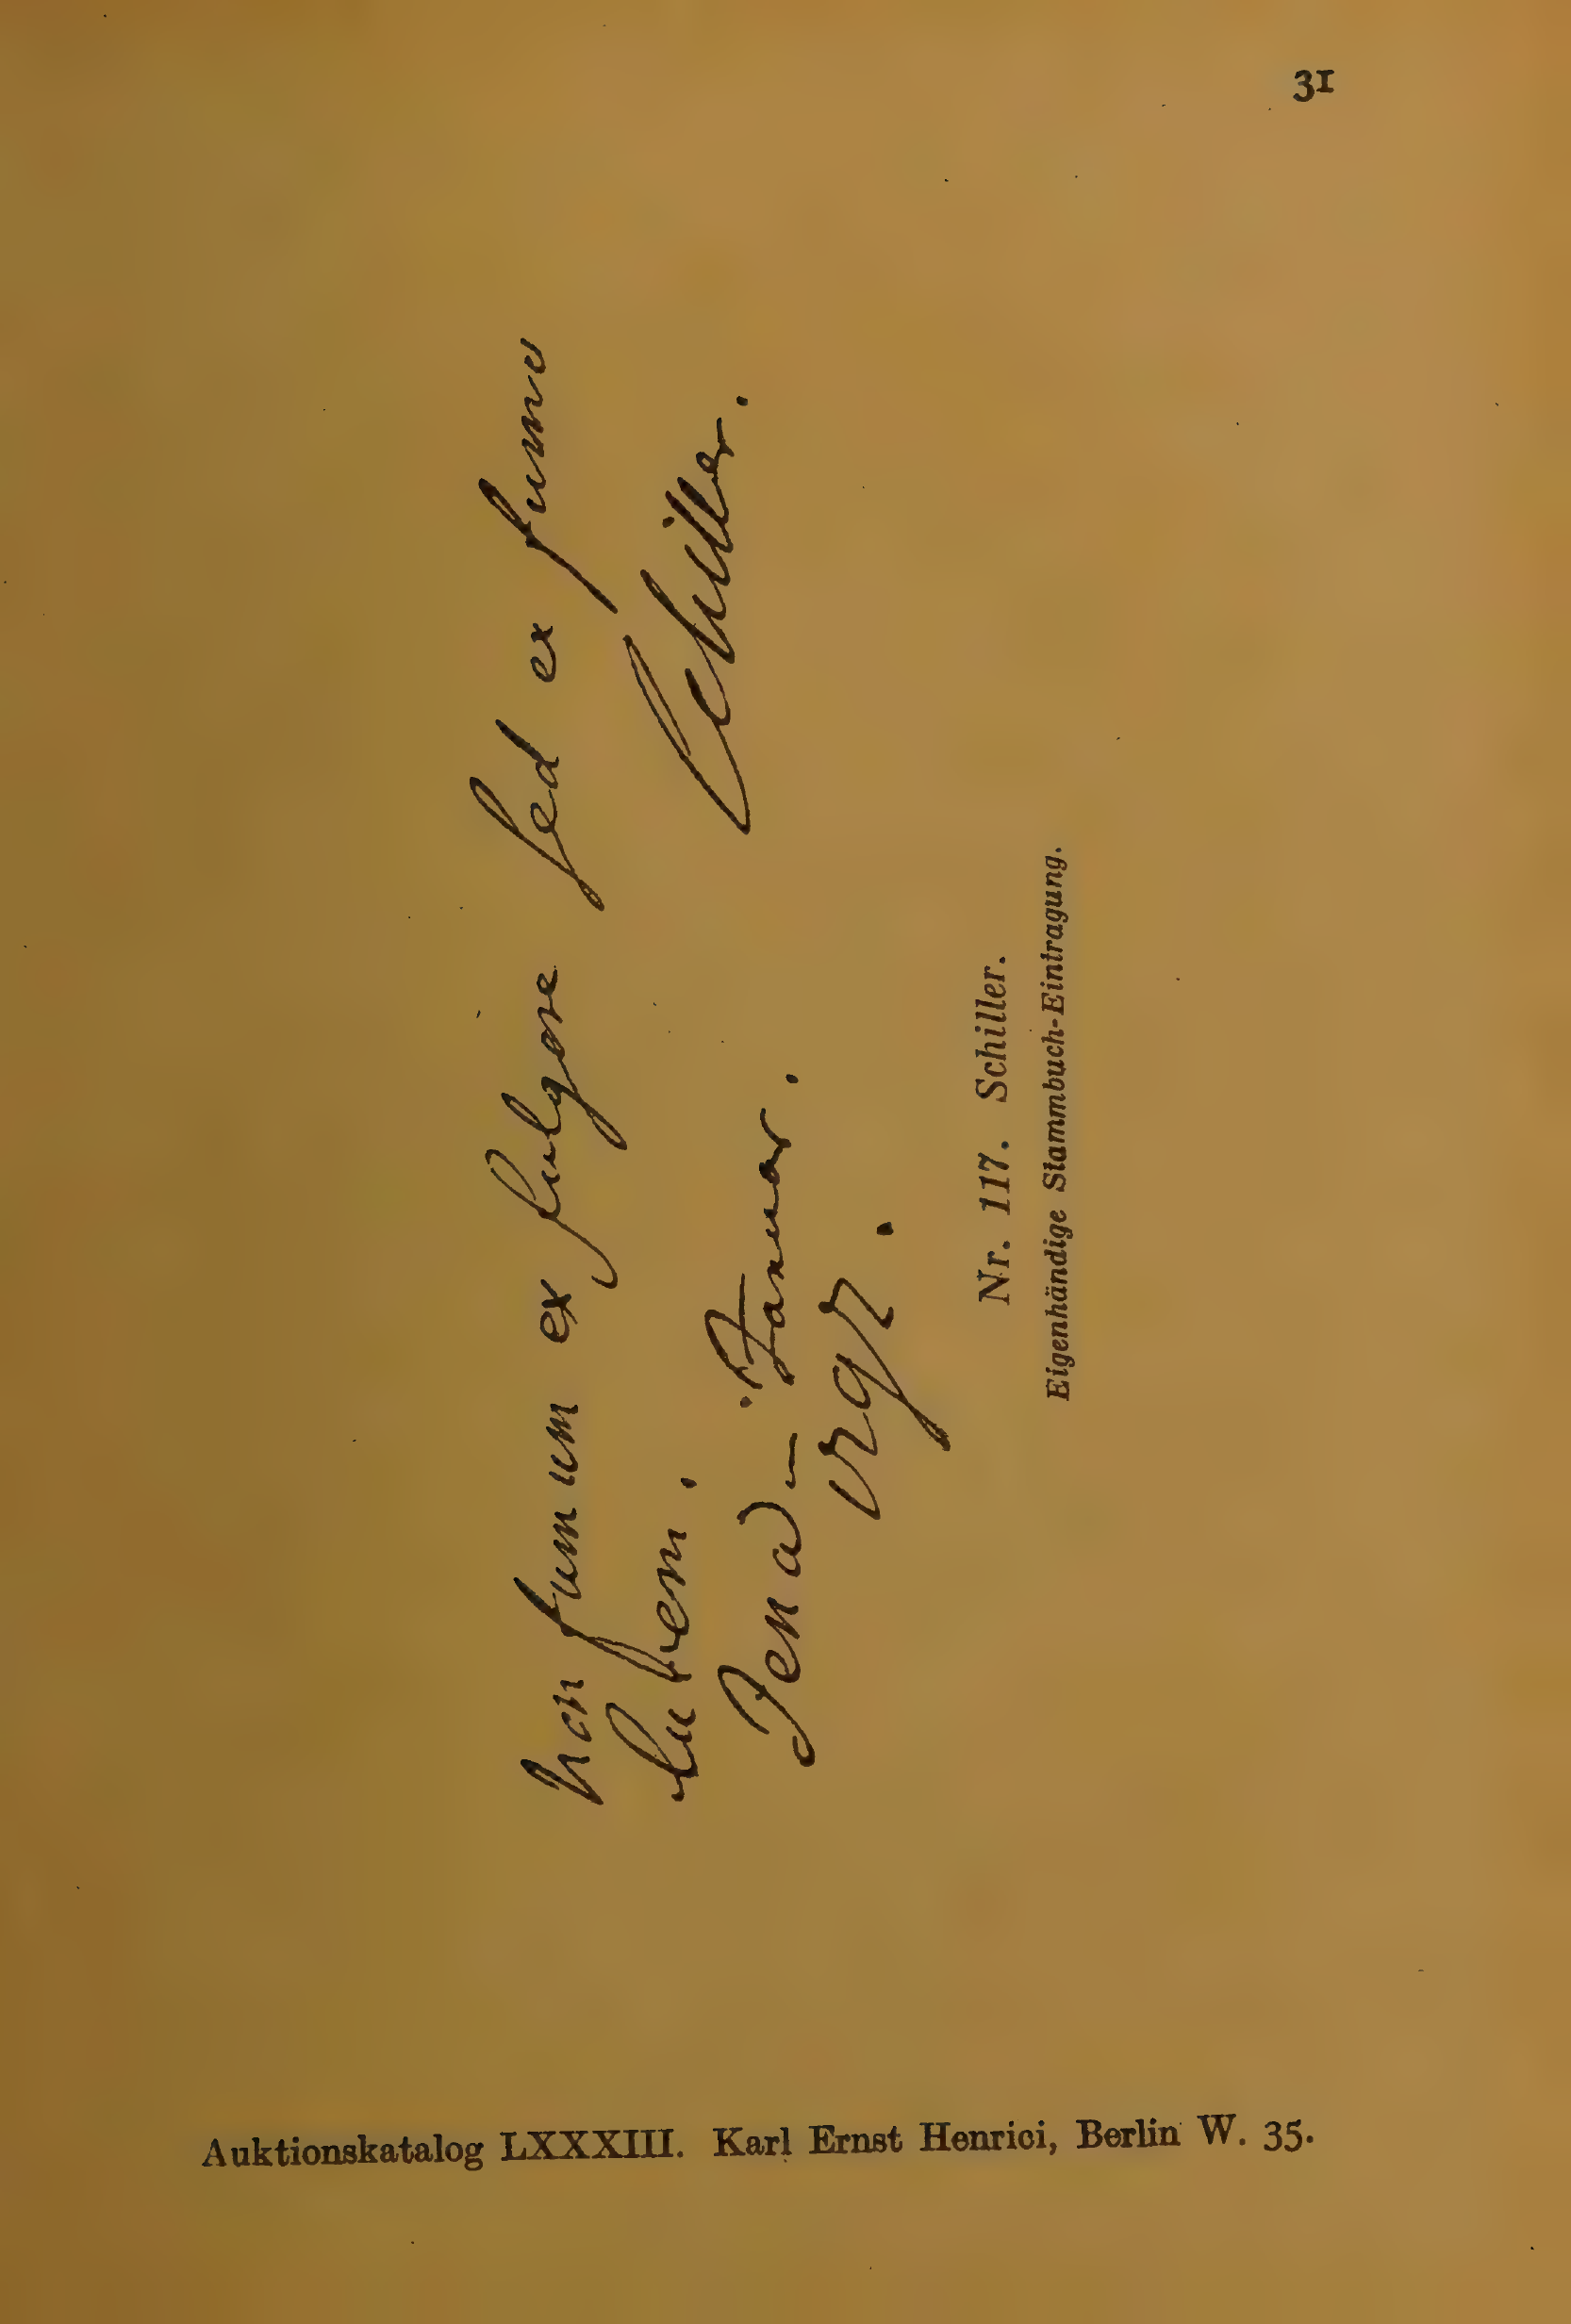 31
non fumum ex fulgore sed ex fumo
lucem.
Schiller.
Jena – Januar.
1797.
Nr. 117. Schiller.
Eigenhändige Stammbuch-Eintragung.
Auktionskatalog LXXXIII. Karl Ernst Henrici, Berlin W. 35.